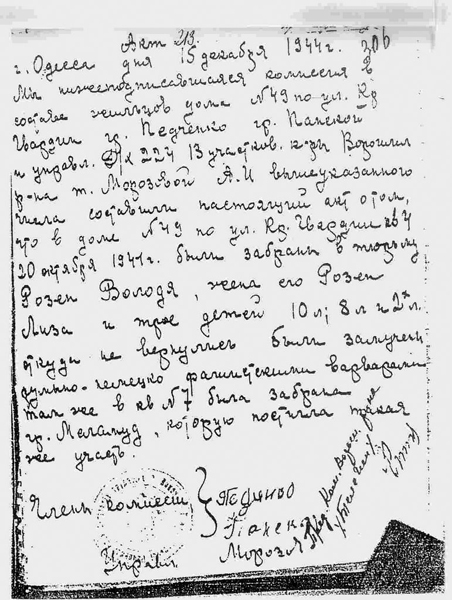 Акт 219.
г. Одесса дня 15 декабря 1944 г. 306
Мы нижеподписавшаяся комиссия в
составе жильцов дома №49 по ул. Кр
Гвардии гр. Педченко гр. Панской
и управл. д/х 224 13 участков. к-ры Ворошил
р-на т. Морозовой А.И вышеуказанного
числа составили настоящий акт о том,
что в доме №49 по ул. Кр. Гвардии кв 4
20 октября 1941 г. были забраны в тюрьму
Розен Володя, жена его Розен
Лиза и трое детей 10 л; 8 л и 2х л.
откуда не вернулись были замучены
румыно-немецко фашистскими варварами
так же в кв № 7 была забрана
гр. Меламуд, которую постигла такая
же участь.
Члены комиссии
Управл. Мороз